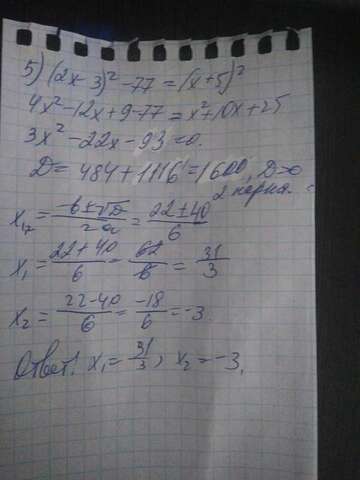 5) (2x-3)² -77 = (x+5)²
4x² -12x+9-77 = x²+10x+25
3x² -22x -93 =0.
D = 484+1116 = 1600, D>0
2 корня.
x₁,₂ = -b±√D / 2a = 22±40 / 6
x₁ = 22+40 / 6 = 62 / 6 = 31 / 3
x₂ = 22-40 / 6 = -18 / 6 = -3.
Ответ: x₁ = 31/3; x₂ = -3.